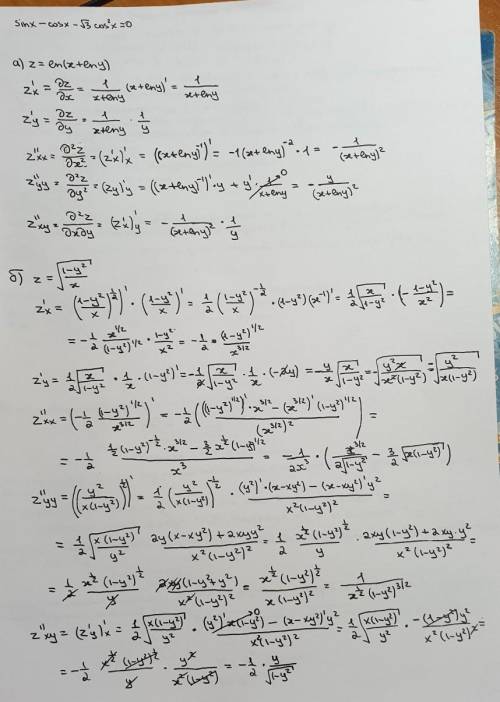 sinx - cosx - √3 cos²x = 0
а) z = ln(x+lny)
z'x = ∂z/∂x = 1/(x+lny) (x+lny)' = 1/(x+lny)
z'y = ∂z/∂y = 1/(x+lny) · 1/y
z''xx = ∂²z/∂x² = (z'x)'x = ((x+lny)⁻¹)' = -1(x+lny)⁻² · 1 = - 1/(x+lny)²
z''yy = ∂²z/∂y² = (z'y)'y = ((x+lny)⁻¹)' · y + y' · 1/(x+lny) → 0 = - y/(x+lny)²
z''xy = ∂²z/∂x∂y = (z'x)'y = - 1/(x+lny)² · 1/y
б) z = √((1-y²)/x)
z'x = (((1-y²)/x)^(1/2))' · ((1-y²)/x)' = 1/2 ((1-y²)/x)^(-1/2) · (1-y²)(x⁻¹)' = 1/2 √(x/(1-y²)) · (- (1-y²)/x²) =
= - 1/2 x^(1/2)/(1-y²)^(1/2) · (1-y²)/x² = - 1/2 · (1-y²)^(1/2)/x^(3/2)
z'y = 1/2 √(x/(1-y²)) · 1/x · (1-y²)' = - 1/2 √(x/(1-y²)) · 1/x · (-2y) = - y/x √(x/(1-y²)) = - √(y²x/(x²(1-y²))) = √(y²/(x(1-y²)))
z''xx = (- 1/2 (1-y²)^(1/2)/x^(3/2))' = - 1/2 (((1-y²)^(1/2))' · x^(3/2) - (x^(3/2))' (1-y²)^(1/2))/(x^(3/2))²) =
= - 1/2 (1/2 (1-y²)^(-1/2) · x^(3/2) - 3/2 x^(1/2) (1-y²)^(1/2))/x³ = - 1/(2x³) · (x^(3/2)/(2√(1-y²)) - 3/2 √(x(1-y²)))
z''yy = ((y²/(x(1-y²)))^(1/2))' = 1/2 (y²/(x(1-y²)))^(-1/2) · ((y²)' · (x-xy²) - (x-xy²)' y²)/(x²(1-y²)²) =
= 1/2 √(x(1-y²)/y²) (2y(x-xy²) + 2xyy²)/(x²(1-y²)²) = 1/2 x^(1/2) (1-y²)^(1/2)/y · (2xy(1-y²) + 2xy·y²)/(x²(1-y²)²) =
= 1/2 x^(1/2) (1-y²)^(1/2)/y 2xy(1-y²+y²)/(x²(1-y²)²) = x^(1/2) (1-y²)^(1/2)/(x(1-y²)²) = 1/(x^(1/2) (1-y²)^(3/2))
z''xy = (z'y)'x = 1/2 √(x(1-y²)/y²) · ((y²)' x(1-y²) → 0 - (x-xy²)' y²)/(x²(1-y²)²) = 1/2 √(x(1-y²)/y²) · -(1-y²)y²/(x²(1-y²)²) =
= - 1/2 x^(1/2) (1-y²)^(1/2)/y · y²/(x²(1-y²)) = - 1/2 · y/√(1-y²)